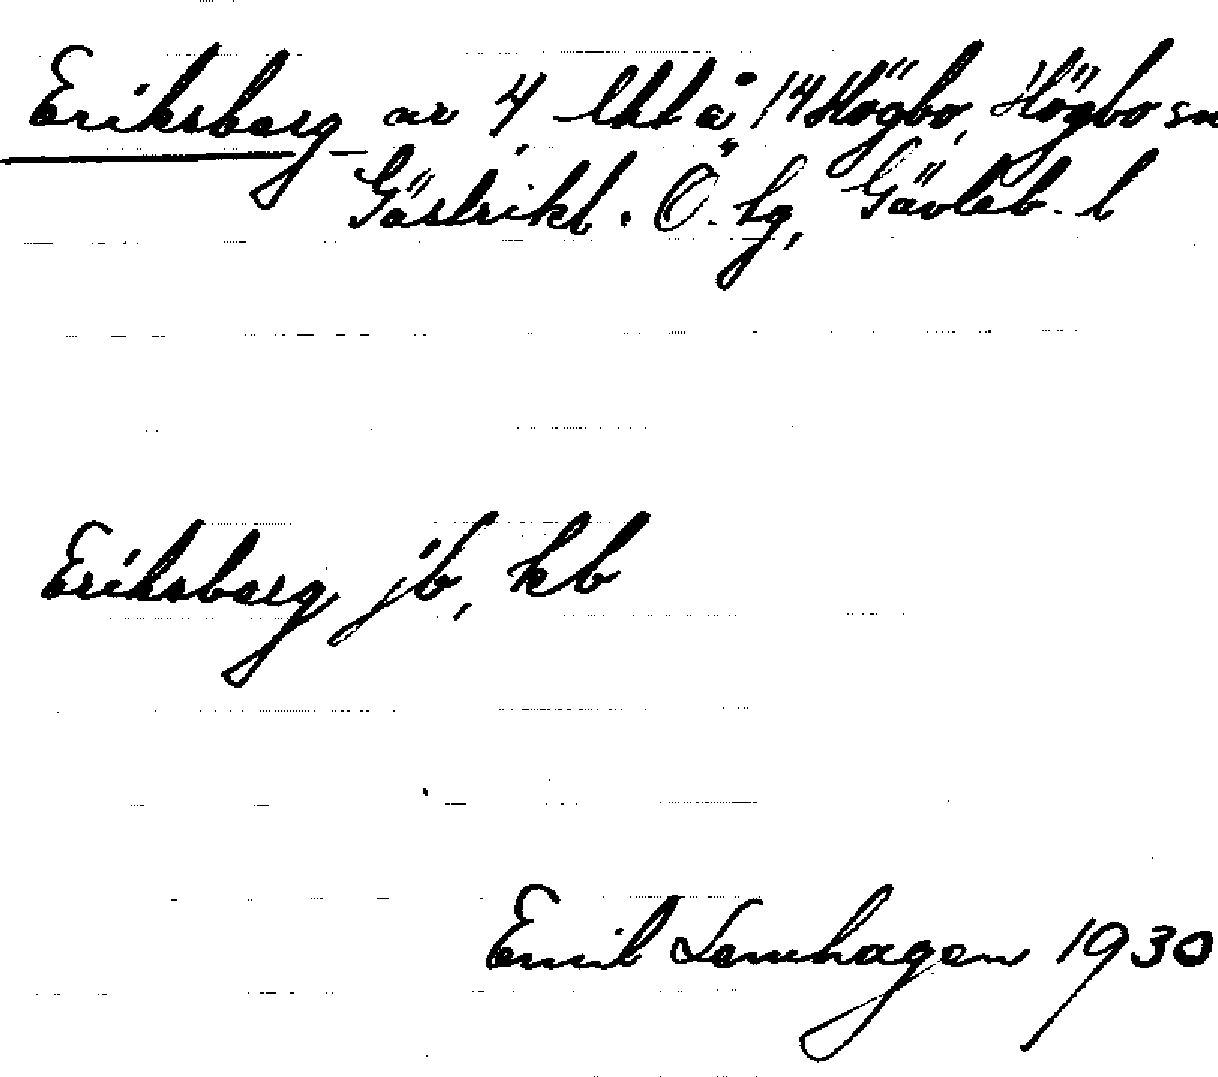 Eriksberg av 4 lht å 14 Högbo, Högbo sn
Gästrikl. Ö. hg, Gävleb. l
Eriksberg jb, kb
Emil Lemhagen 1930